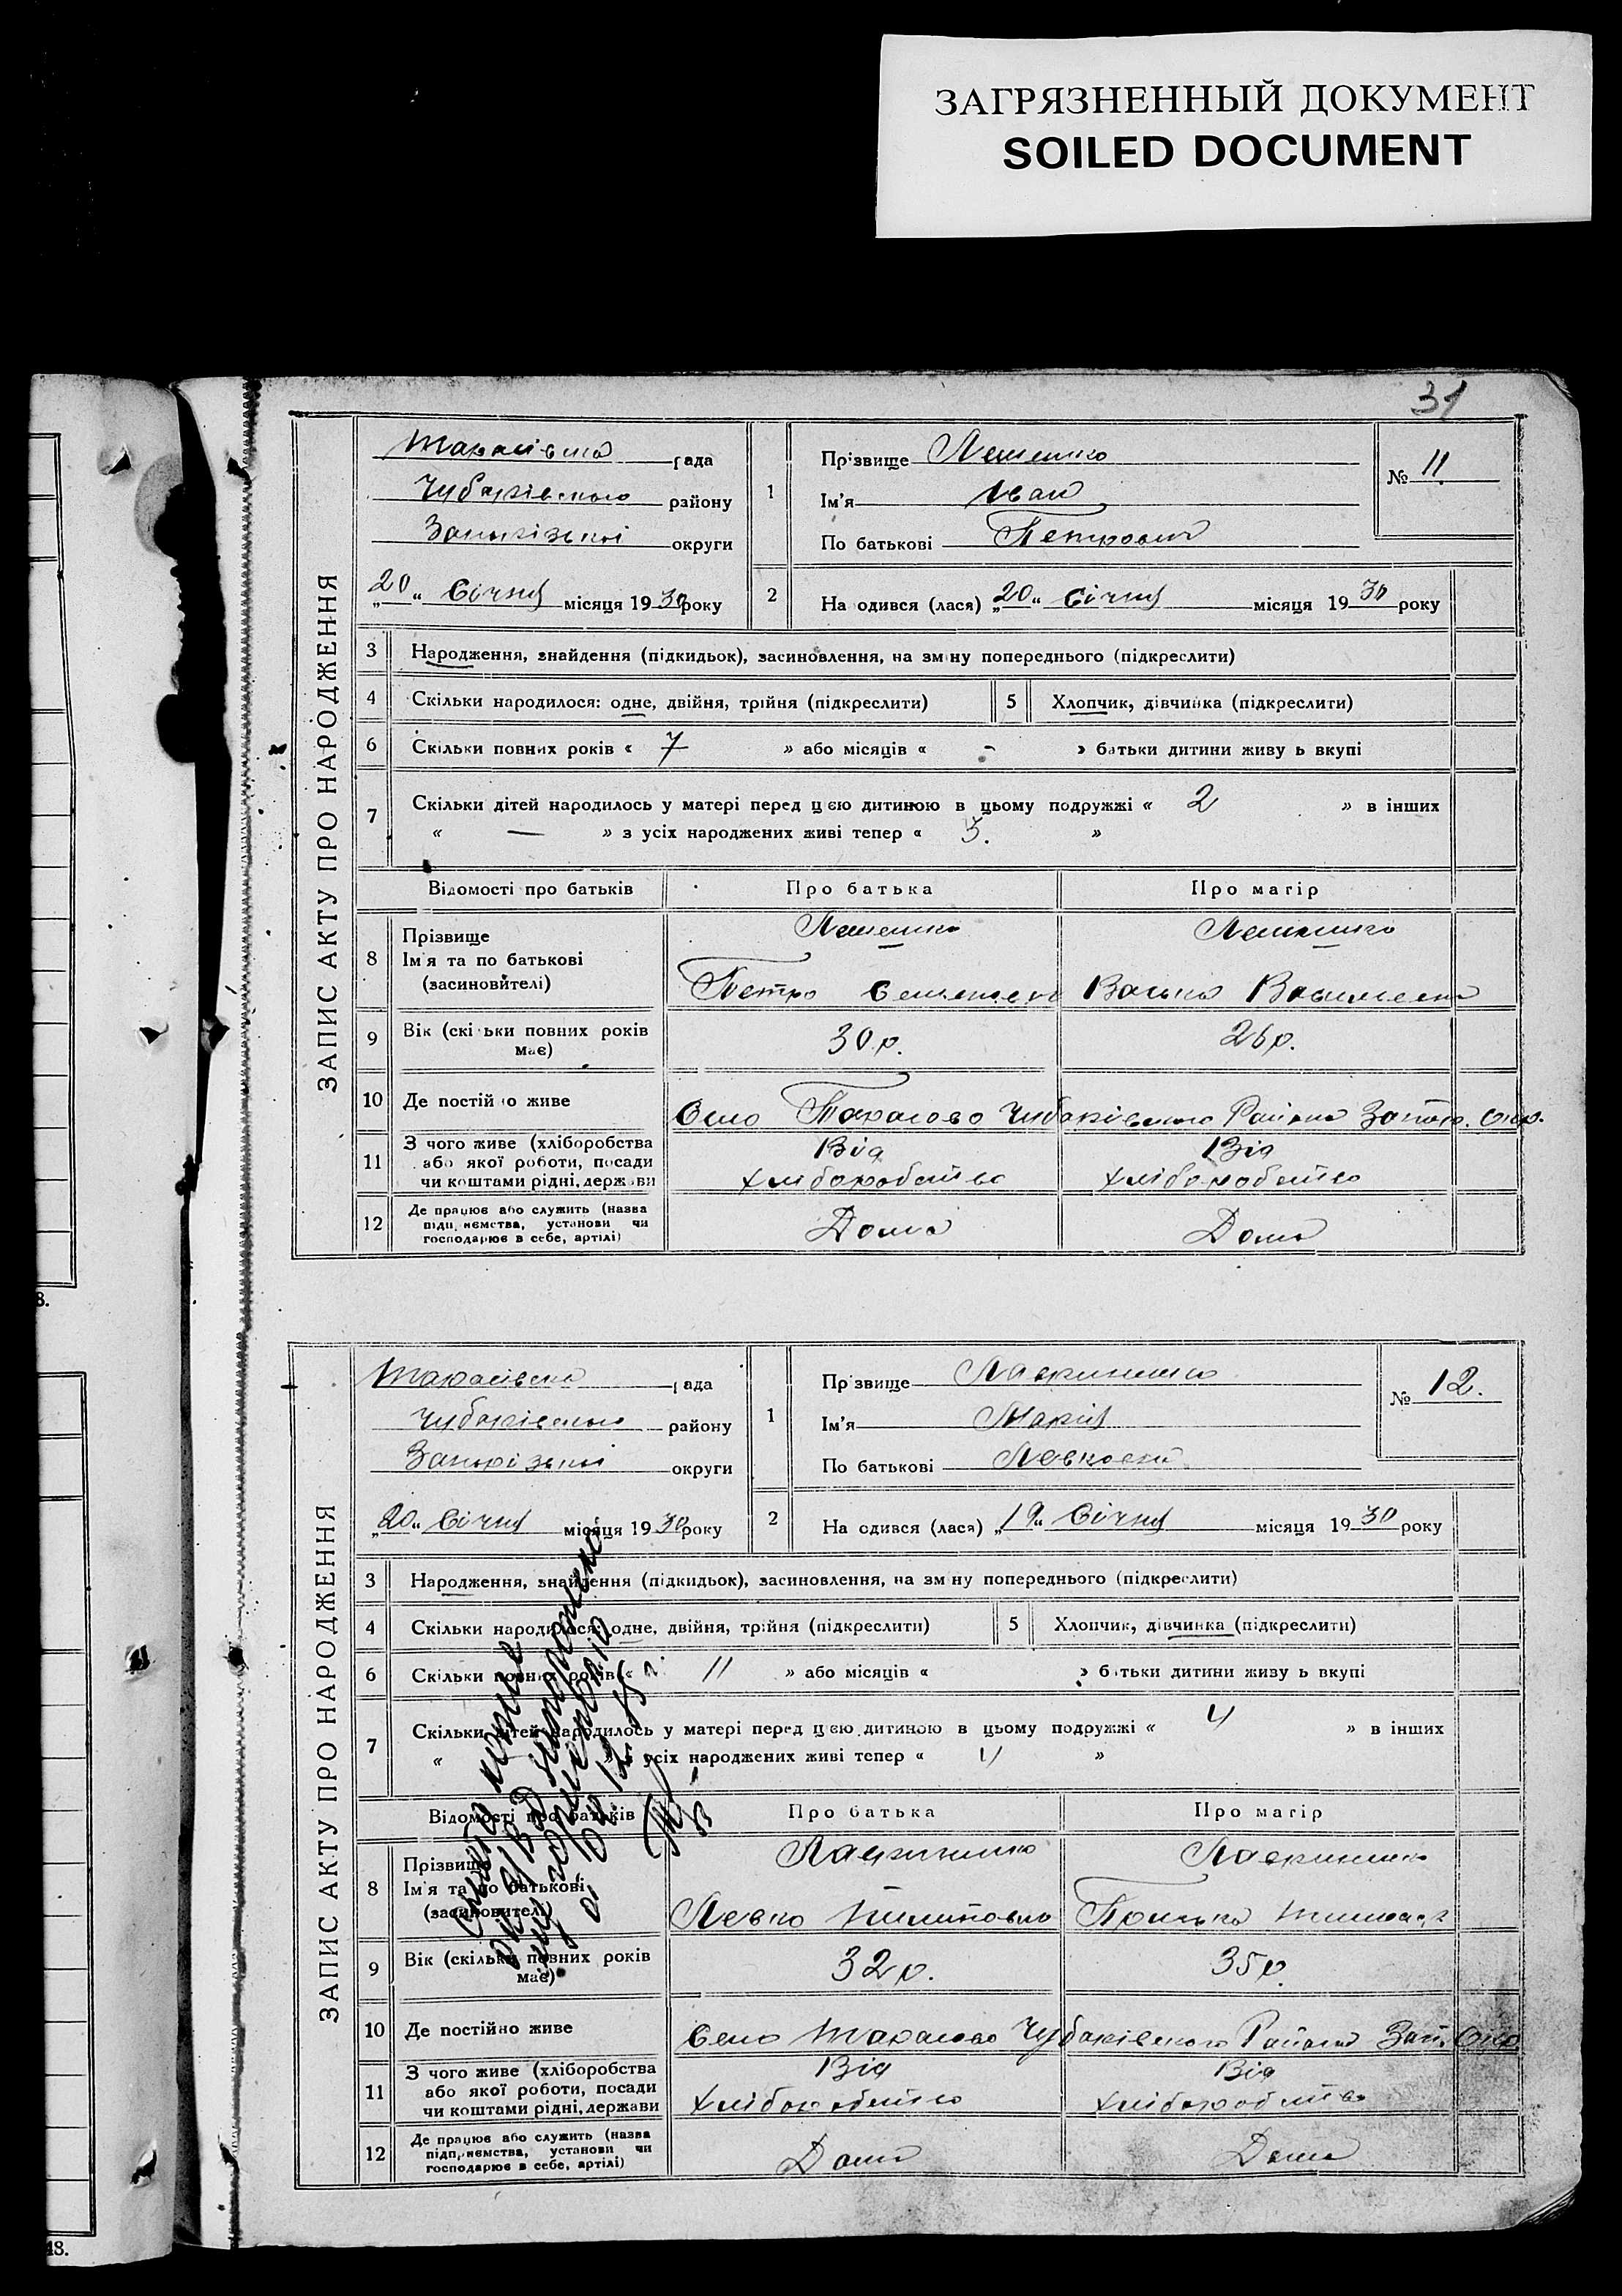 ЗАГРЯЗНЕННЫЙ ДОКУМЕНТ
SOILED DOCUMENT
31
ЗАПИС АКТУ ПРО НАРОДЖЕННЯ
Тарасівська рада
Чубарівського району
Запорізької округи
„20“ Січня місяця 1930 року
1
Прізвище Лешенко
Ім'я Іван
По батькові Петрович
№ 11.
2
На одився (лася) „20“ Січня місяця 1930 року
3 Народження, знайдення (підкидьок), засиновлення, на зм ну попереднього (підкреслити)
4 Скільки народилося: одне, двійня, трійня (підкреслити)
5 Хлопчик, дівчинка (підкреслити)
6 Скільки повних років « 7 » або місяців « - » батьки дитини живу ь вкупі
7 Скільки дітей народилось у матері перед цією дитиною в цьому подружжі « 2 » в інших
« — » з усіх народжених живі тепер « 3. »
Відомості про батьків Про батька Про матір
8 Прізвище
Ім'я та по батькові
(засиновителі)
Лешенко Лешенко
Петро Васильевна
9 Вік (скі ьки повних років має)
30 р. 26 р.
10 Де постій о живе
Село Тарасово Чубарівського Района Запор. Окр.
11 З чого живе (хліборобства
або якої роботи, посади
чи коштами рідні, держави
Від Від
хліборобства хліборобства
12 Де працює або служить (назва
підп, иємства, установи чи
господарює в себе, артілі)
Дома Дома
ЗАПИС АКТУ ПРО НАРОДЖЕННЯ
Тарасівська рада
Чубарівського району
Запорізької округи
„20“ Січня місяця 1930 року
1
Пр звище Лавриненко
Ім'я Марія
По батькові Левковна
№ 12.
2
На одився (лася) „19“ Січня місяця 1930 року
3 Народження, знайдення (підкидьок), засиновлення, на зм ну попереднього (підкреслити)
4 Скільки народилося: одне, двійня, трійня (підкреслити)
5 Хлопчик, дівчинка (підкреслити)
6 Скільки повних років « 11 » або місяців « » батьки дитини живу ь вкупі
7 Скільки дітей народилось у матері перед цією дитиною в цьому подружжі « 4 » в інших
« » з усіх народжених живі тепер « 4 »
Відомості про батьків Про батька Про матір
8 Прізвище
Ім'я та по батькові
(засиновителі)
Лавриненко Лавриненко
Левко
9 Вік (скільки повних років має)
32 р. 35 р.
10 Де постійно живе
Село Тарасово Чубарівського Района Зап. Окр
11 З чого живе (хліборобства
або якої роботи, посади
чи коштами рідні, держави
Від Від
хліборобства хліборобства
12 Де працює або служить (назва
підп, иємства, установи чи
господарює в себе, артілі)
Дома Дома
8.
48.